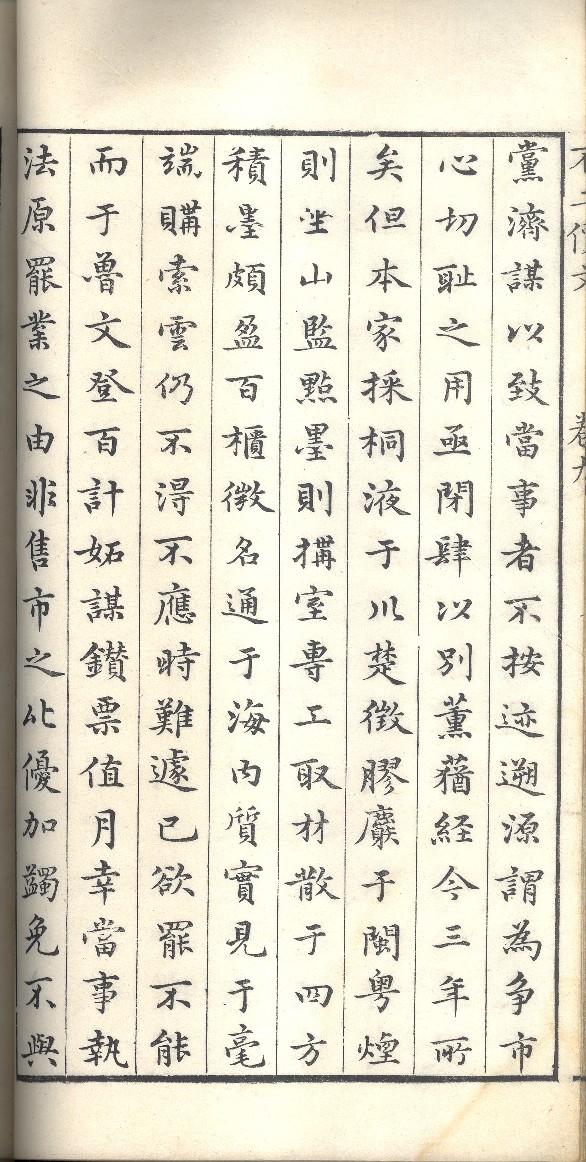 黨濟謀以致當事者不按迹遡源謂為争市
心切耻之用亟閉肆以別薰蕕経今三年所
矣但本家採桐液于川楚徵膠麋于閩粤煙
則坐山監點墨則搆室專工取材散于四方
積墨頗盈百櫃微名通于海内質實見于毫
端購索雲仍不淂不應時難遽已欲罷不能
而于魯文登百計妬謀鑚票值月幸當事執
法原罷業之由非售市之比優加蠲免不與
卷九